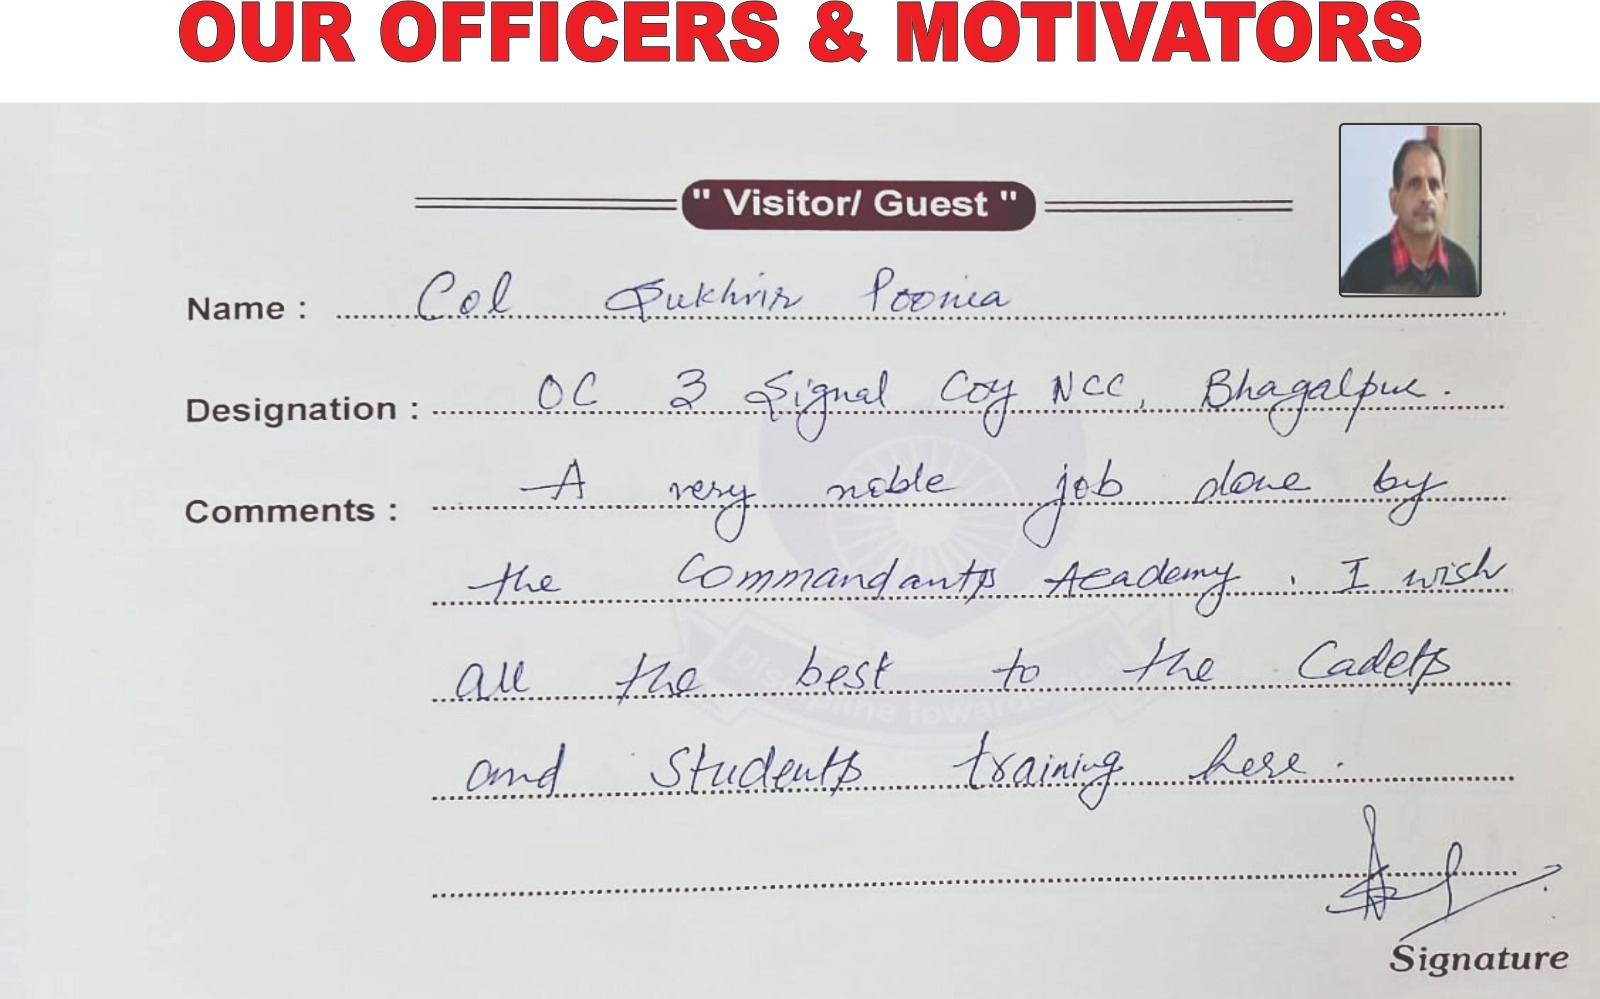 OUR OFFICERS & MOTIVATORS
" Visitor/ Guest "
Name : Col Sukhvir Poonia
Designation : OC 3 Signal Coy NCC, Bhagalpur.
Comments : A very noble job done by
the Commandants Academy. I wish
all the best to the Cadets
and Students training here.
Signature